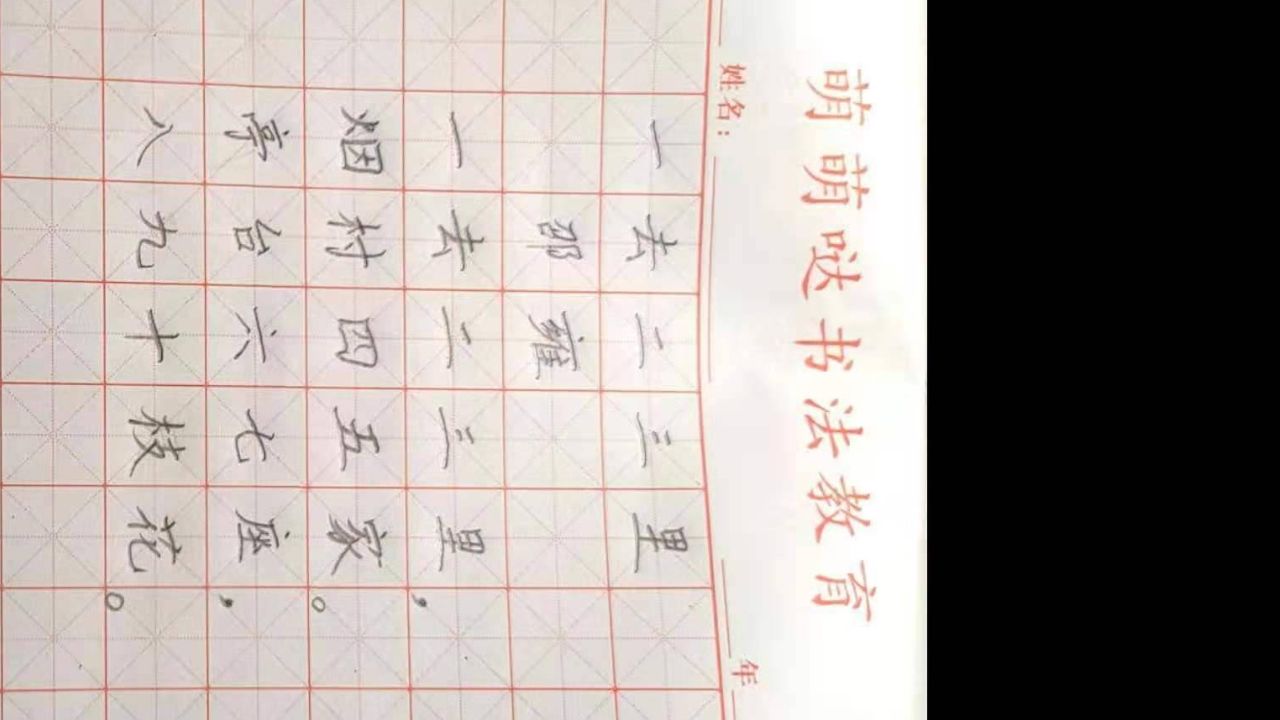 萌萌哒书法教育
姓名: 年
一去二三里
邵雍
一去二三里,
烟村四五家。
亭台六七座,
八九十枝花。